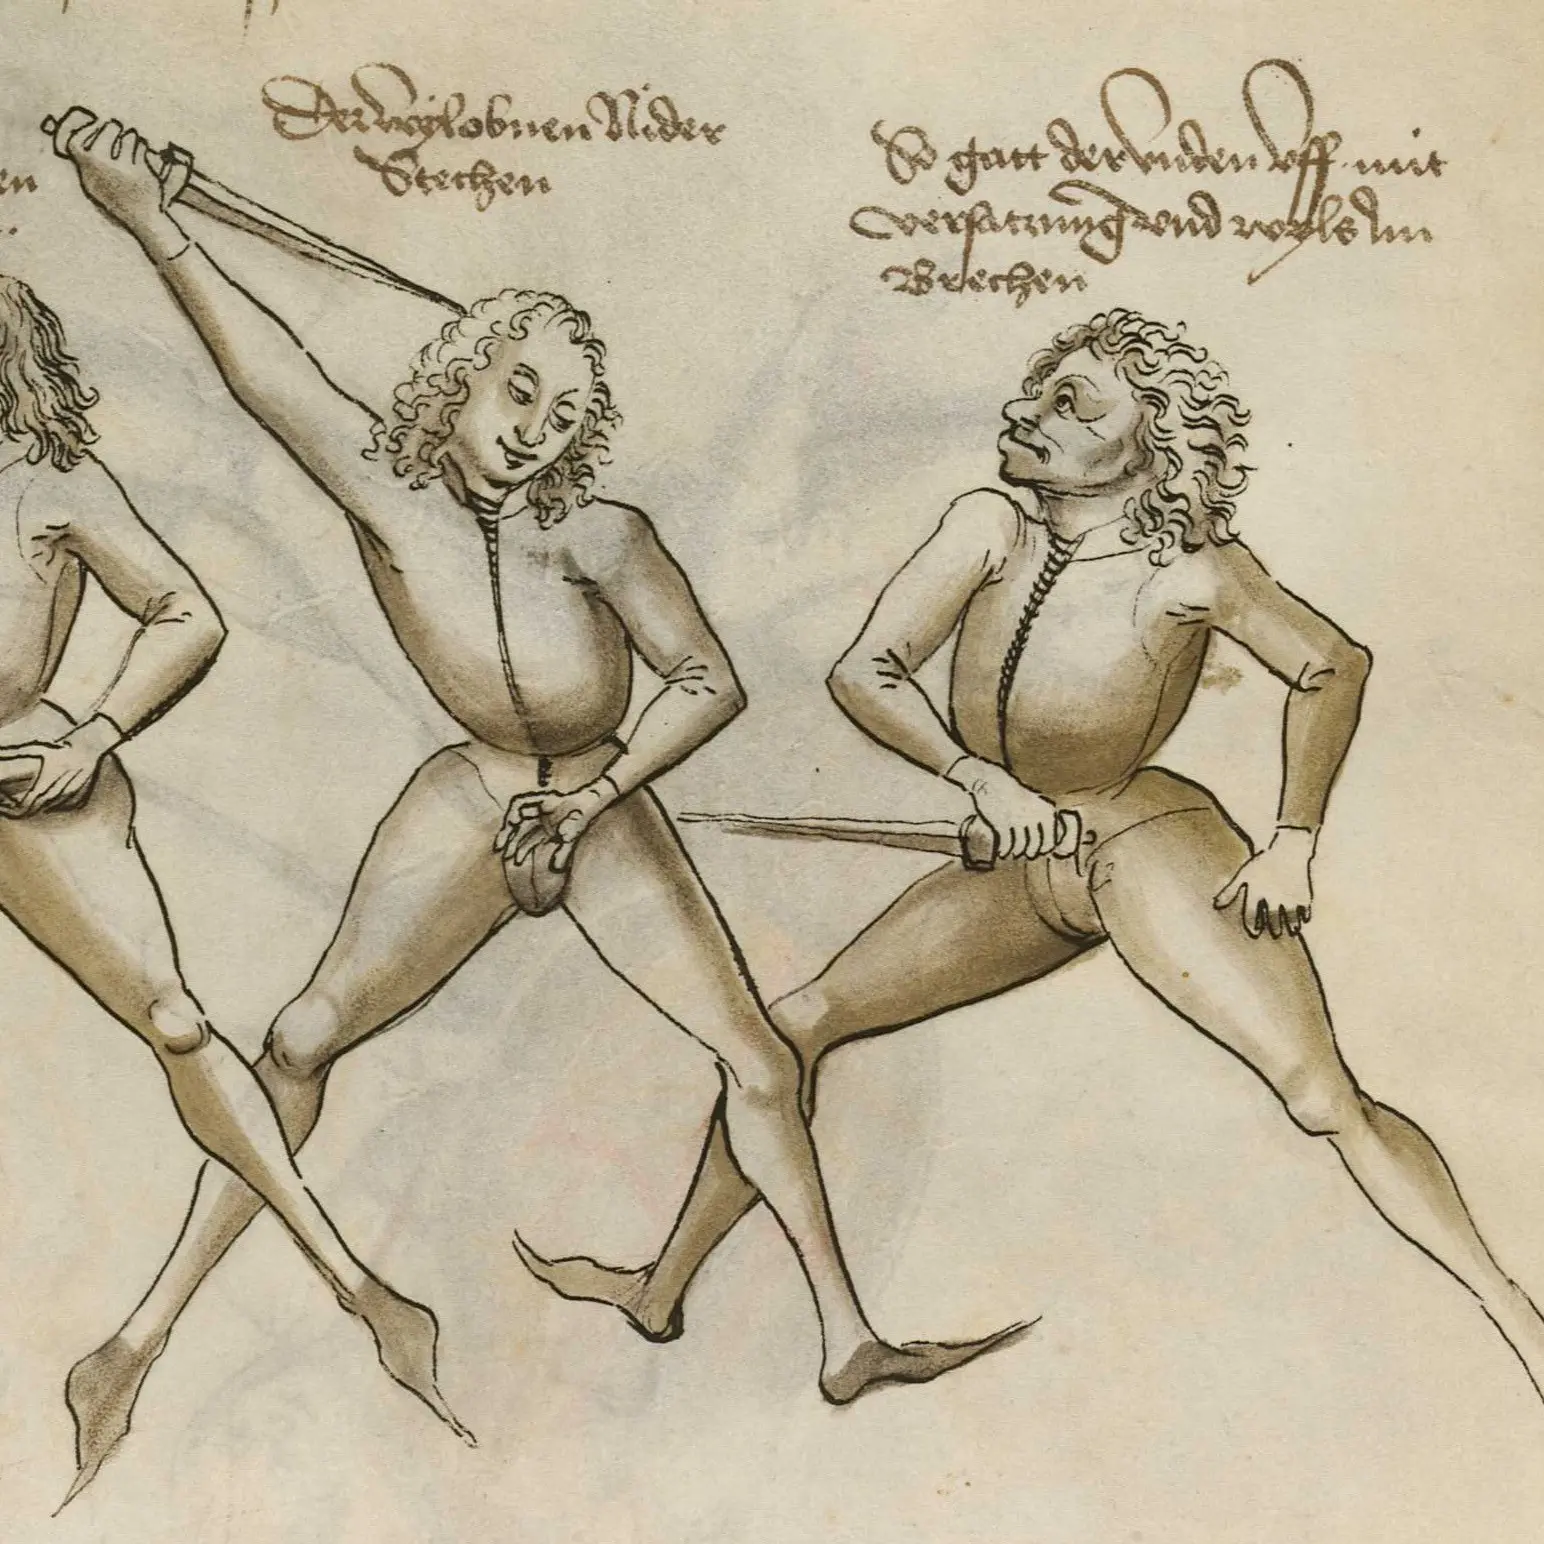 en
Der wyl obnen Nider
Stechen
So gatt der unden uff mit
versatzung und wyls Im
Brechen